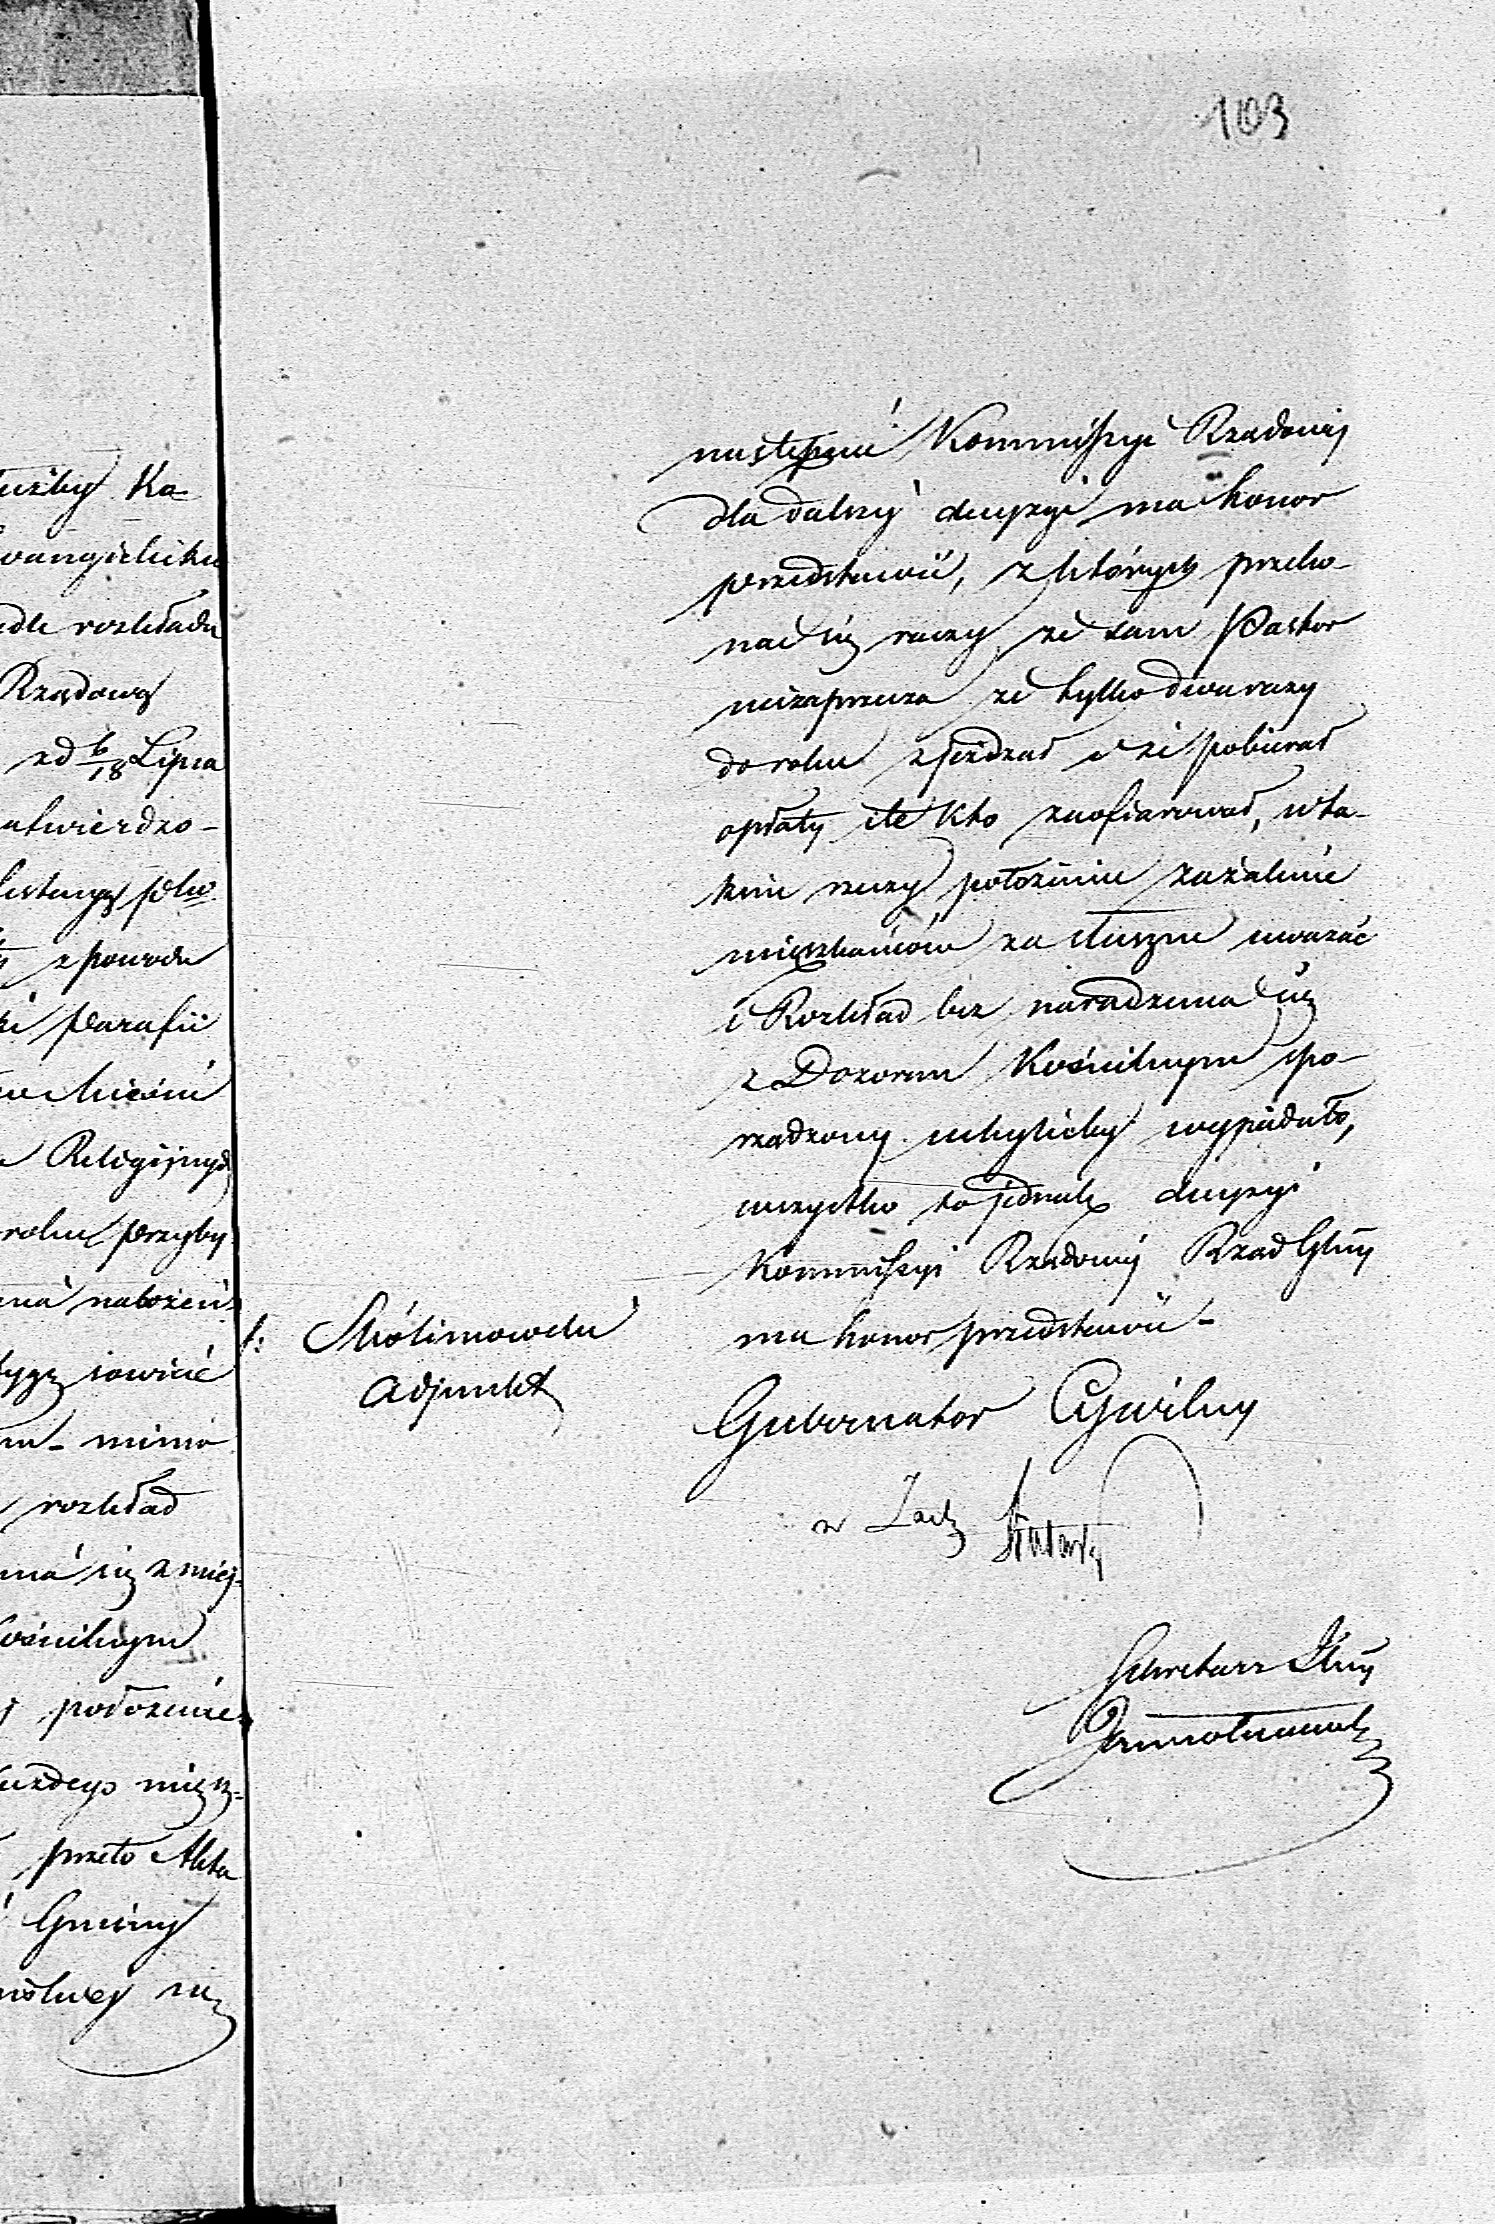 użby Ka-
wangielicku
edle rozkładu
Rządową
zd 6/18 Lipca
atwierdzo-
z powodu
parafii
Religijnych
roku przyby-
nabożeń-
mimo
rozkład
się z miej-
ościelnym
położenie
każdego miesz-
przeto Akta
Gminy
się
103
nastąpić Kommissyi Rządowej
dla dalszej decyzyi ma honor
przedstawić, z których przeko-
nać się raczy, że sam Pastor
niezaprzecza że tylko dwa razy
do roku zjeżdżał i że pobierał
opłaty ile kto zaofiarował, w ta-
kim rzeczy położeniu zażalenie
mieszkańców za słuszne uważać
i Rozkład bez naradzenia się
z Dozorem Kościelnym spo-
rządzony uchylićby wypadało,
wszystko to jednak decyzyi
Kommissyi Rządowej Rząd Glny
ma honor przedstawić -
Gubernator Cywilny
w Zastę
Sekretarz Glny
f:
Adjunkt